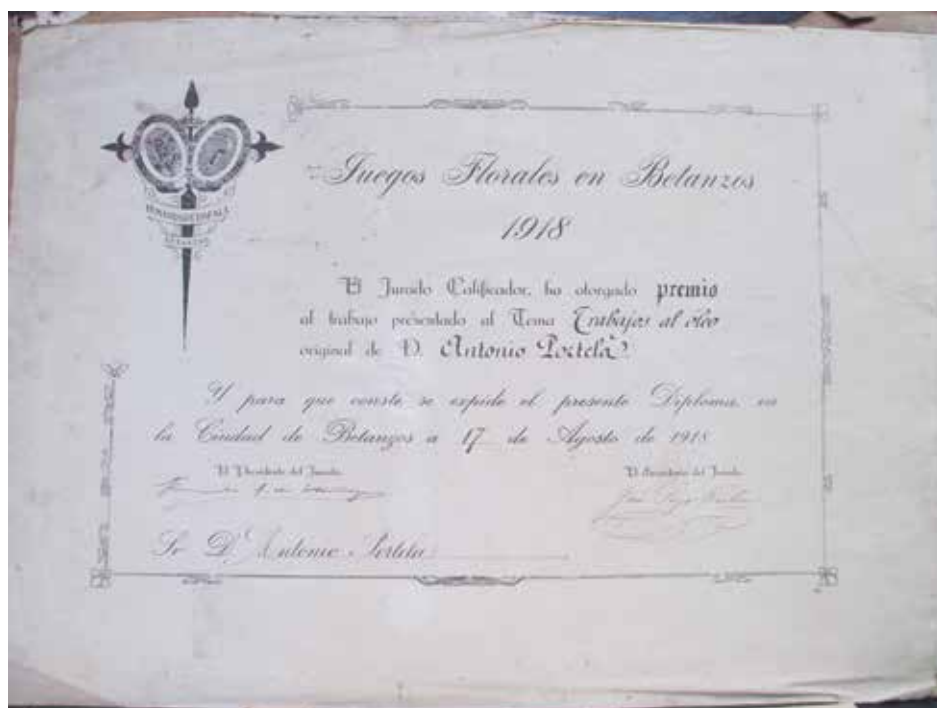 Juegos Florales en Betanzos
1918
El Jurado Calificador, ha otorgado premio
al trabajo presentado al Tema Trabajos al oleo
original de D. Antonio Portela
Y para que conste se expide el presente Diploma en
la Ciudad de Betanzos a 17 de Agosto de 1918
El Presidente del Jurado
El Secretario del Jurado
Sr. D. Antonio Portela